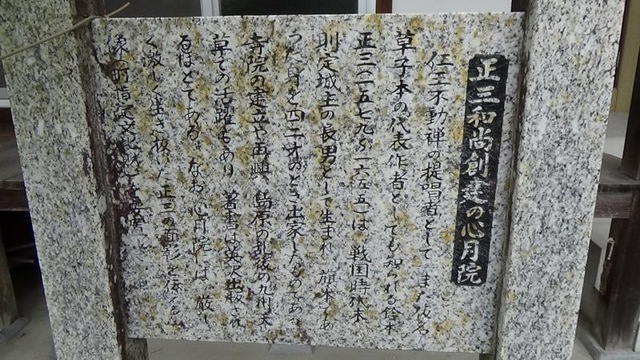 正三和尚創建の心月院
仁王不動禅の提唱者として、また仮名
草子本の代表作者としても知られる鈴木
正三(一五七九〜一六五五)は、戦国時代末
則定城主の長男として生まれ、旗本であ
った身を四二才のとき出家したのであ
寺院の建立や再興、島原の乱後の九州天
草での活躍もあり、著書は 出版され
るほどである。なお、心月院には、厳し
く激しく生き抜いた正三の面影を伝える
像(町指定文化財)